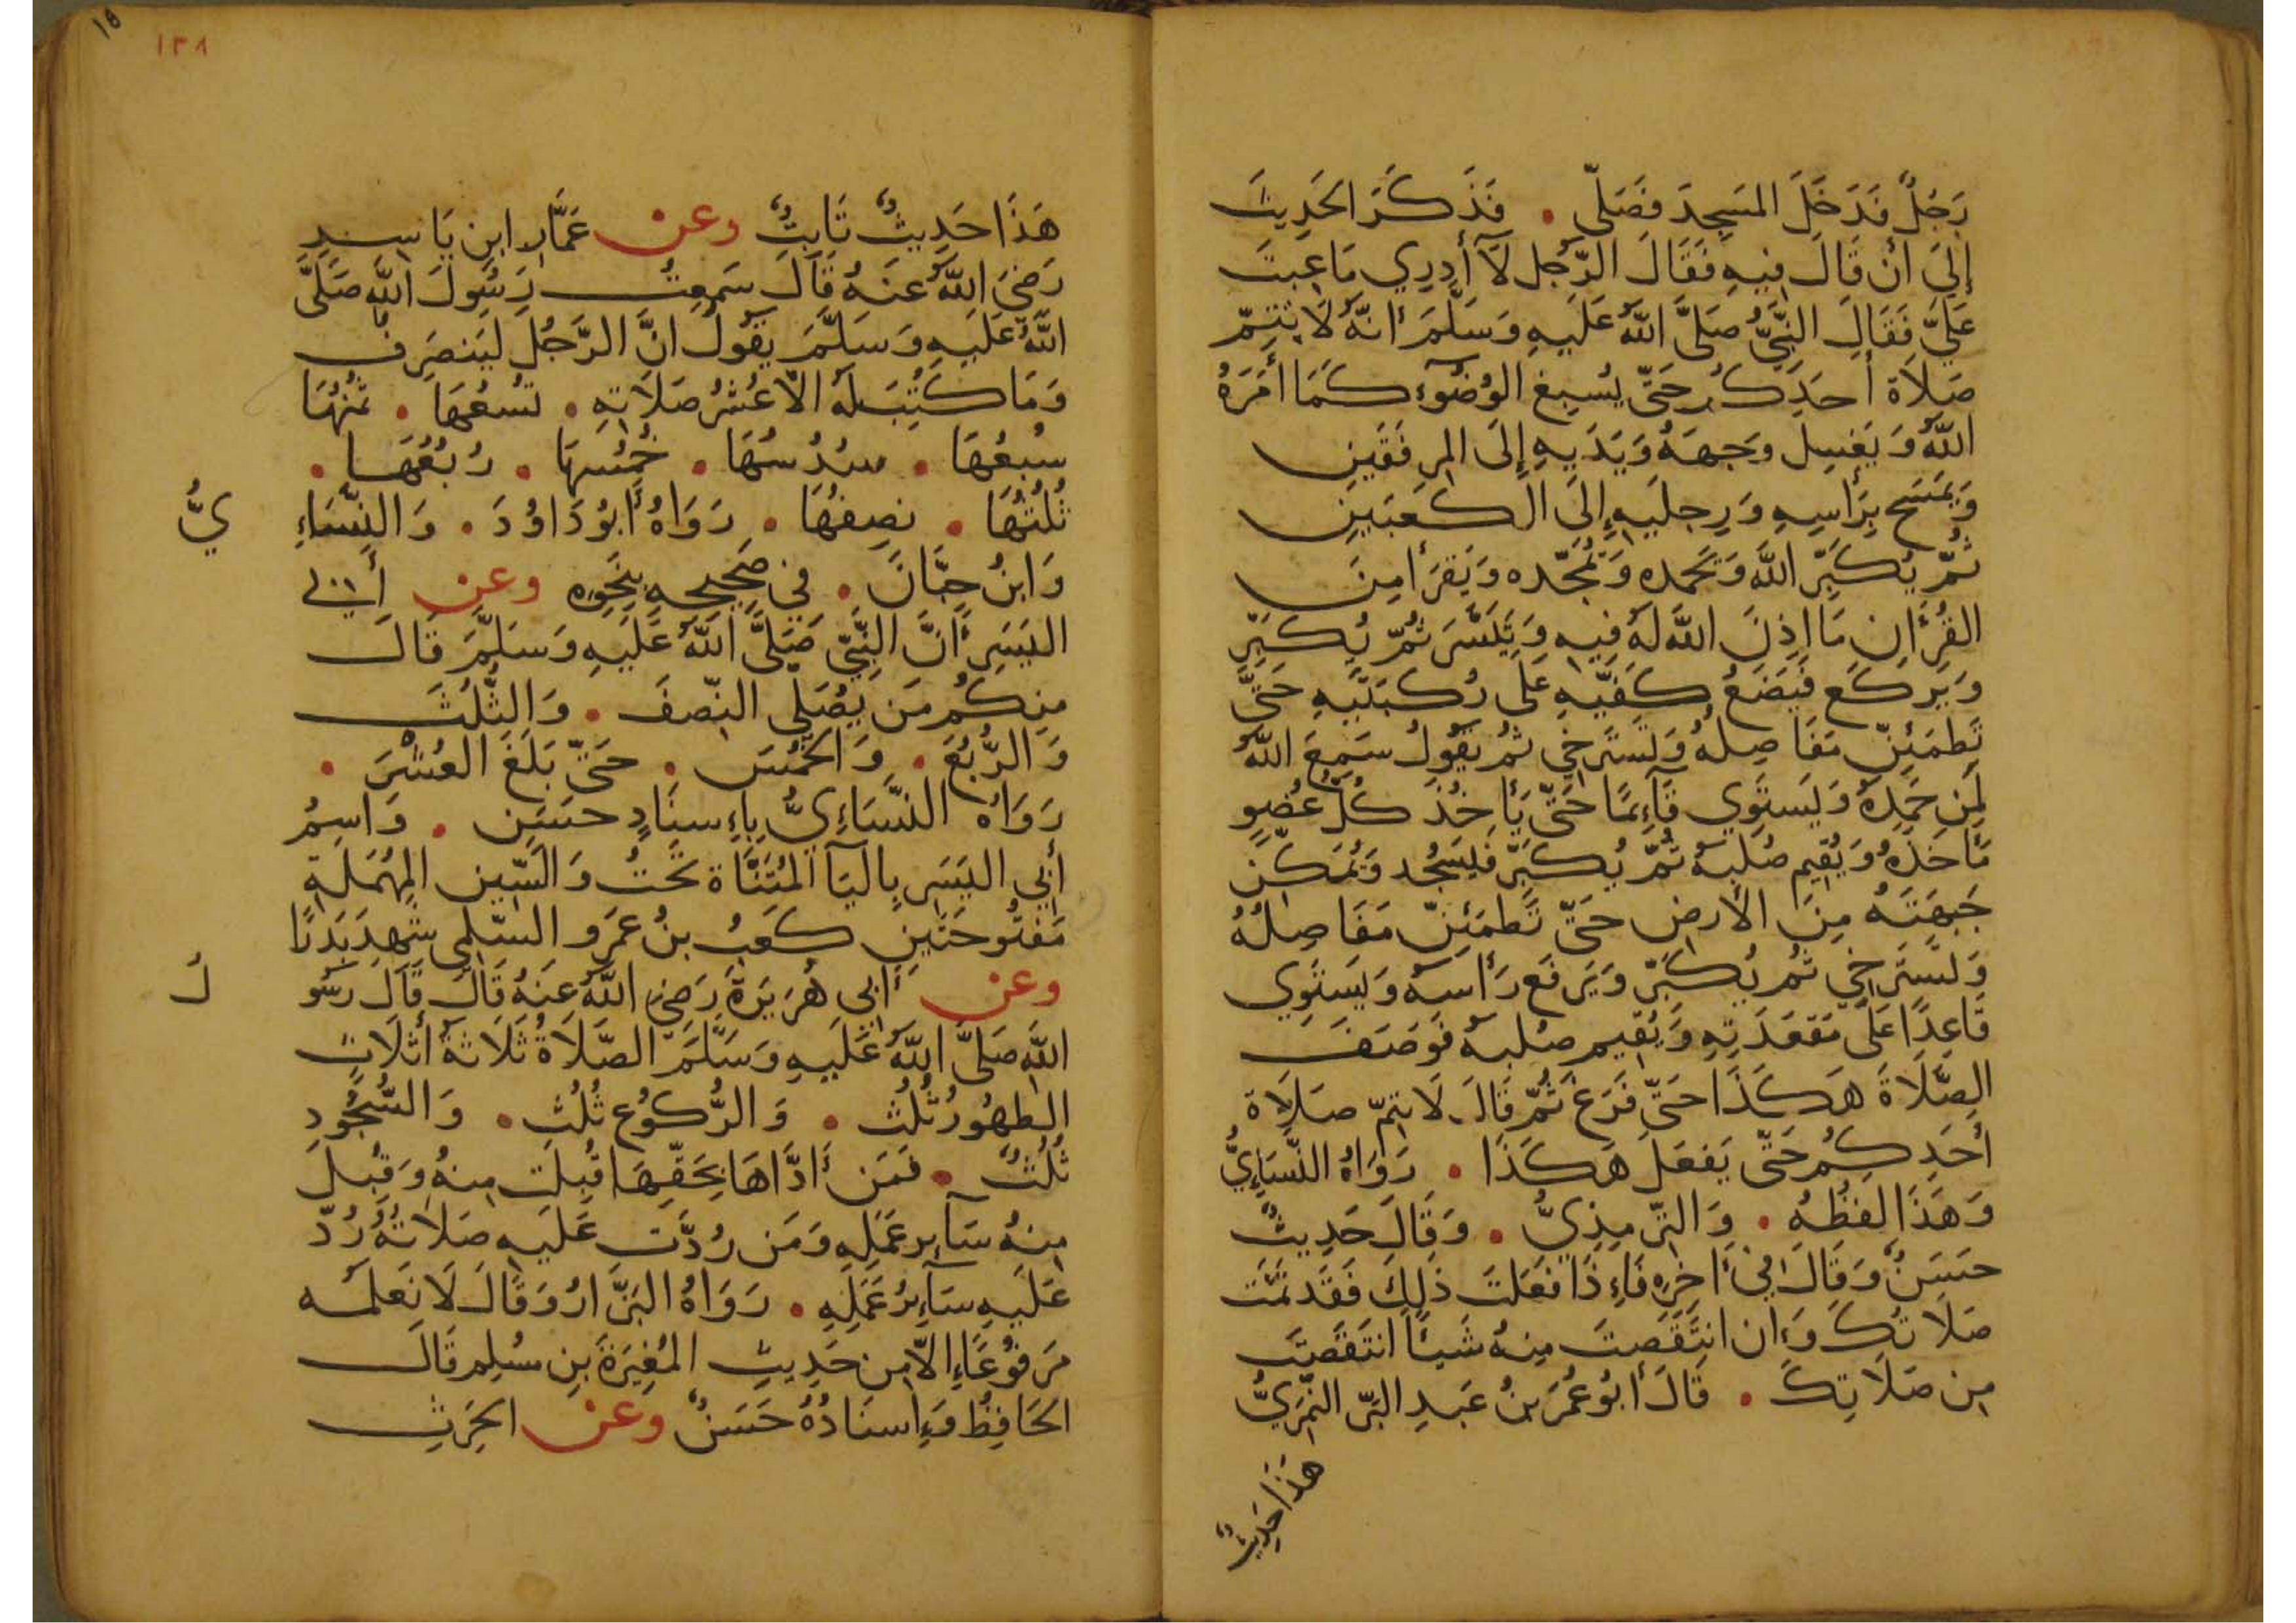 رَجُلٌ فَدَخَلَ المَسجِدَ فَصَلّى . فَذَكَرَ الحَدِيثَ
إِلىَ أَن قَالَ فِيهِ فَقَالَ الرَّجُل لَآ أَدرِي مَا عِبتَ
عَلَيَّ فَقَالَ النَّبِيُّ صَلَّى اللَّهُ عَلَيهِ وَسَلَّمَ أنَّهُ لَا يَتِمّ
صَلَاة أَحَدِكُم حَتّى يُسبِغ الوُضُوءَ كَمَا أَمَرَهُ
اللَّهُ وَيَغسِل وَجهَهُ وَيَدَيهِ إِلَى المِرفَقَينِ
وَيَمسَح بِرَأسِهِ وَرِجلَيهِ إِلَى الكَعبَينِ
ثُمَّ يُكَبِّر اللَّهَ وَيَحمَده وَيُمَجِّده وَيَقرَأ مِنَ
القُرءَانِ مَا اذِنَ اللَّه لَهُ فِيهِ وَتَيَسَّرَ ثُمّ يُكَبِّر
وَيَركَع فَيَضَعُ كَفَّيهِ عَلَى رُكبَتَيهِ حَتَّى
تَطمَئِنّ مَفَاصِلهُ وَتَستَرخِي ثُم يَقُولُ سَمِعَ اللَّهُ
لِمَن حَمِدَهُ وَيَستَوِي قَآءِمًا حَتّى يَأخُذَ كُلّ عُضوٍ
مَاخَذَهُ وَيُقِيم صُلبَهُ ثُمّ يُكَبِّر فَيَسجُد وَيُمَكّن
جَبهَتَهُ مِنَ الأَرض حَتّى تَطمَئِنّ مَفَاصِلُهُ
وَتَستَرخِي ثُم يُكَبّر وَيَرفَع رَأسَهُ وَيَستَوِي
قَاعِدًا عَلَى مَقعَدَتِهِ وَيُقِيم صُلبَهُ فَوَصَفَ
الصَّلَاةَ هَكَذَا حَتّى فَرَغَ ثُمّ قَالَ لَا تتِمّ صَلَاة
أَحَدِكُم حَتّى يَفعَلَ هَكَذَا . رَوَاهُ النَّسَاءِيُّ
وَهَذَا لَفظُهُ . وَالتِّرمِذِيُّ . وَقَالَ حَدِيثٌ
حَسَنٌ وَقَالَ فِي ءَاخِرِهِ فَاءِذَا فَعَلتَ ذَلِكَ فَقَد تَمَّت
صَلَاتُكَ وَءان انتَقَصتَ مِنهُ شَيئًا انتَقَصتَ
مِن صَلَاتِكَ . قَالَ أَبُو عُمَرَ بنُ عَبدِ البَرّ النَّمَرِيُّ
هَذَا حَدِيثٌ
١٣٨
١٥
هَذَا حَدِيثٌ ثَابِتٌ وعن عَمَّارِ ابنِ يَاسِرٍ
رَضِيَ اللَّهُ عَنهُ قَالَ سَمِعتُ رَسُولَ اللَّه صَلَّى
اللَّهُ عَلَيهِ وَسَلَّمَ يَقُولُ انَّ الرَّجُلَ لَيَنصَرِف
وَمَا كُتِبَ لَهُ الّا عُشرُ صَلَاتِهِ . تُسعُهَا . ثُمنُهَا
سُبعُهَا . سُدُسُهَا . خُمُسهَا . رُبُعُهَا .
ثُلُثُهَا . نِصفُهَا . رَوَاهُ أَبُو دَاوُدَ . وَالنَّسَاءِيُّ
وَابنُ حِبَّانَ . فِي صَحِيحِهِ بِنَحوِهِ وعن أَبِي
اليَسَرِ أَنَّ النَّبِيّ صَلَّى اللَّهُ عَلَيهِ وَسَلَّمَ قَالَ
مِنكُم مَن يُصَلِّي النّصفَ . وَالثُّلُثَ
وَالرُّبُعَ . وَالخُمُسَ . حَتّى بَلَغَ العُشْرَ .
رَوَاهُ النَّسَاءِيُّ بِاءِسنَادٍ حَسَنٍ . وَاسمُ
أَبِي اليَسَرِ بِاليَآ المُثَنَّاة تَحتُ وَالسِّين المُهمَلَةِ
مَفتُوحَتَينِ كَعبُ بنُ عَمرو السّلمِي شَهِدَ بَدرًا
وعن أَبِي هُرَيرَةَ رَضِيَ اللَّهُ عَنهُ قَالَ قَالَ رَسُولُ
اللَّه صَلَّى اللَّهُ عَلَيهِ وَسَلَّمَ الصَّلَاةُ ثَلَاثَةُ أَثلَاثٍ
الطهُورُ ثُلُث . وَالرُّكُوع ثُلُث . وَالسُّجُودِ
ثُلُثٌ . فَمَن أَدَّاهَا بِحَقِّهَا قُبِلَت مِنهُ وَقُبِلَ
مِنهُ سَآير عَمَلِهِ وَمَن رُدَّت عَلَيهِ صَلَاتُهُ رُدّ
عَلَيهِ سَآءِرُ عَمَلِهِ . رَوَاهُ البَزَّارُ وَقَالَ لَا نَعلَمُه
مَرفُوعًا ءِالّا مِن حَدِيثِ المُغِيَرَةَ بنِ مُسلِم قَالَ
الحَافِظُ وَءِاسنَادُهُ حَسَنٌ وعن الحَرِثِ